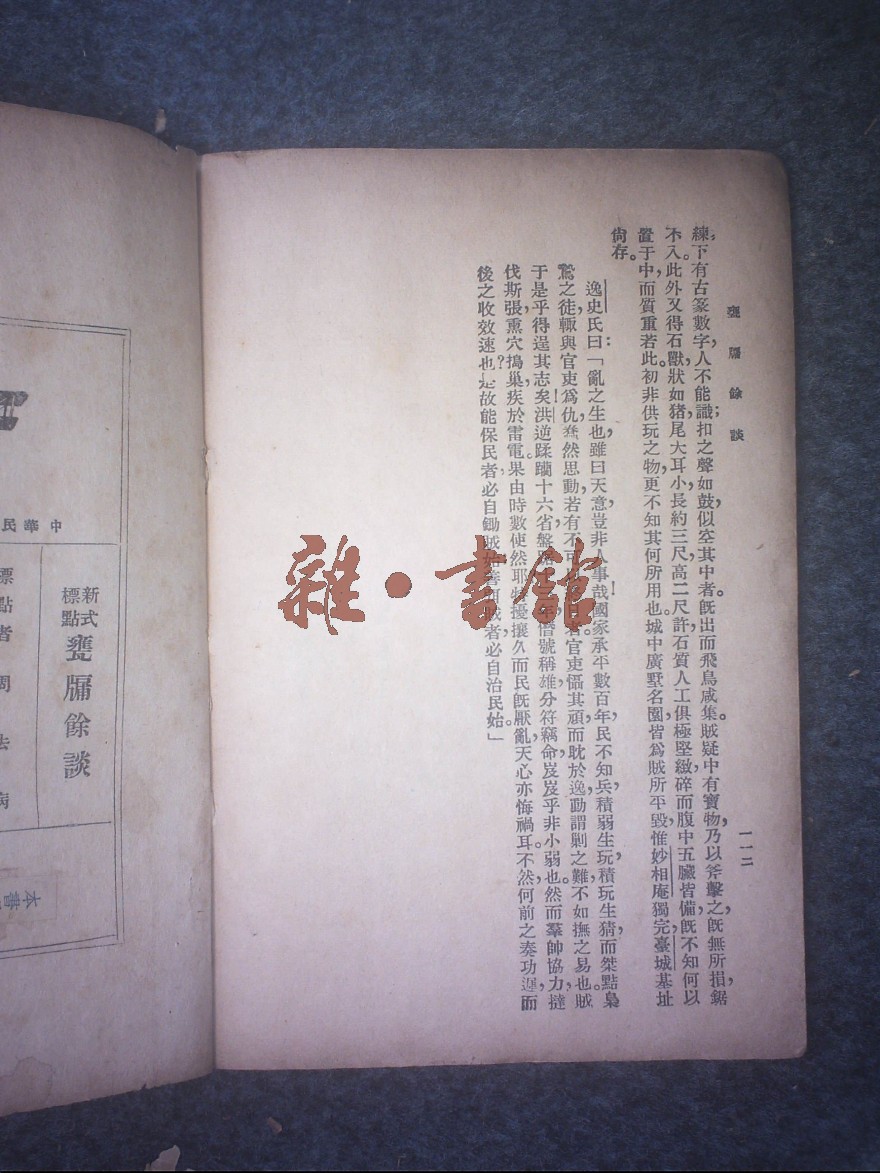 甕牖餘談
一一二
練，下有古篆數字，人不能識；扣之聲如鼓，似空其中者。旣出而飛鳥咸集。賊疑中有寶物，乃以斧擊之，旣無所損，鋸
不入。此外又得石獸，狀如猪，尾大耳小，長約三尺，高二尺許，石質人工，俱極堅緻，碎而腹中五臟皆備，旣不知何以
置于中，而質重若此。初非供玩之物，更不知其何所用也。城中廣墅名園，皆爲賊所平毀，惟妙相庵獨完，臺城基址
尙存。
逸史氏曰：「亂之生也，雖曰天意，豈非人事哉！國家承平數百年，民不知兵，積弱生玩，積玩生猜，而桀黠梟
驁之徒，輒與官吏爲仇，蠢然思動，若有不可 官吏懾其頑而耽於逸，動謂剿之難，不如撫之易也。賊
于是乎得逞其志矣！洪逆蹂躪十六省，盤 年，僭號稱雄，分符竊命，岌岌乎非小弱也。然而羣帥協力，撻
伐斯張，熏穴搗巢，疾於雷電。果由時數使然耶？ 擾攘久而民旣厭亂，天心亦悔禍耳。不然，何前之奏功遲，而
後之收效速也？是故能保民者，必自鋤賊始；善 賊者，必自治民始。」
雜·書館
中華民
新式標點
甕牖餘談
標點者 周
病
本書